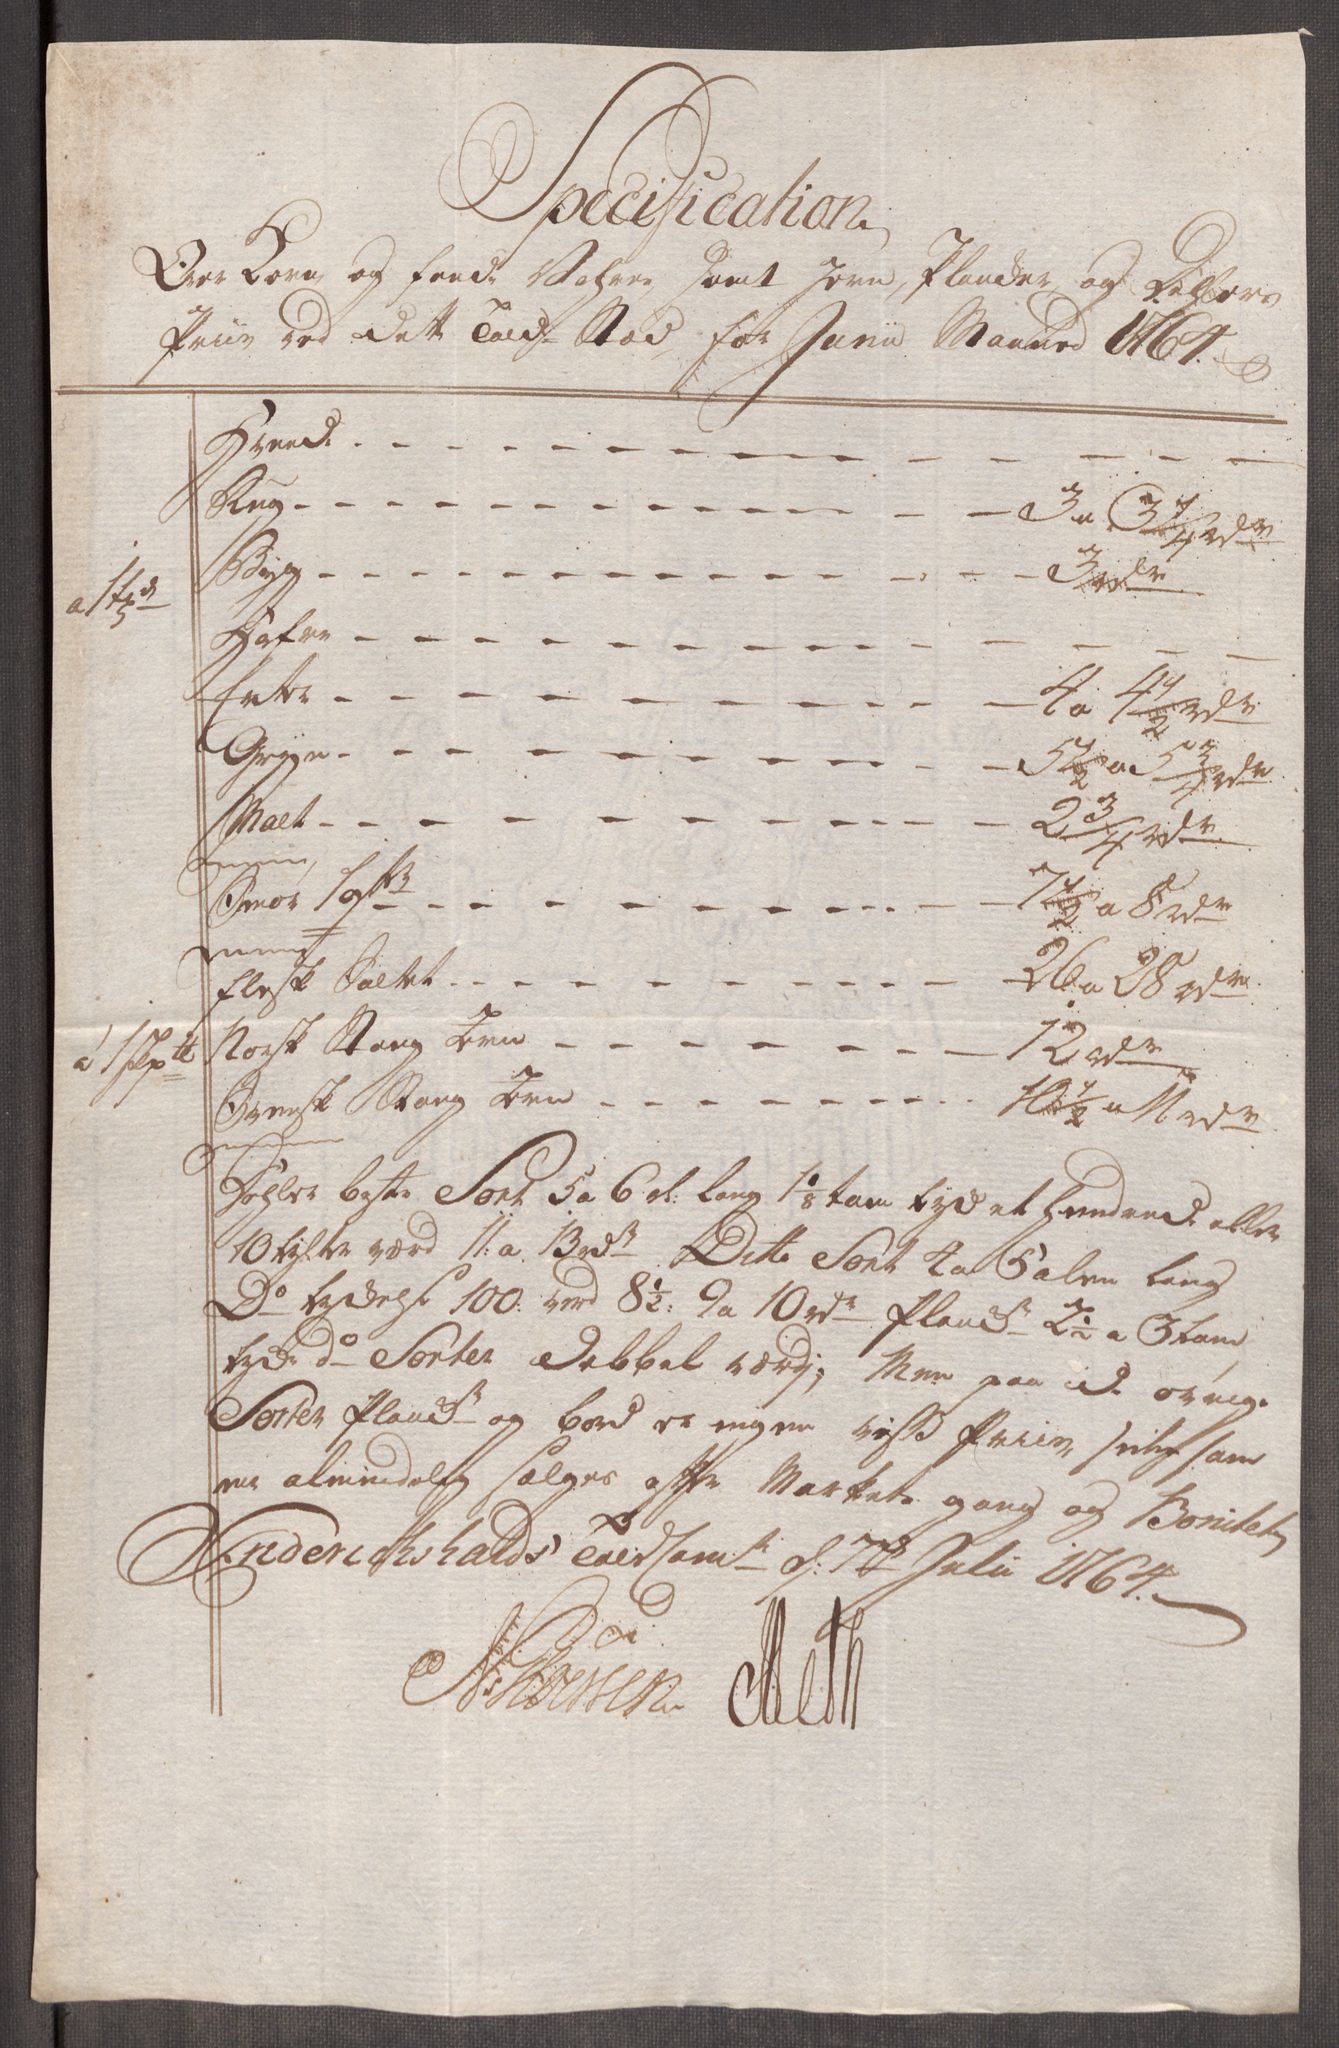 Specification
Over Korn og feede Vahrer samt Jern, Plancker og Dehlers
Priis ved dette Told-Stæd, for Junii Maaned 1764.
Hvede - - - - - - - - - - -
Rug - - - - - - - - - - - 3 a 3 1/4 rdr
a 1 td Byg - - - - - - - - - - - 3 rdr
Hafre - - - - - - - - - - -
Erter - - - - - - - - - - - 4 a 4 1/2 rdr
Gryn - - - - - - - - - - - 5 1/2 a 5 3/4 rdr
Malt - - - - - - - - - - - 2 3/4 rdr
Smør 1 - - - - - - - - - - - 7 1/2 a 8 rdr
Flesk Saltet - - - - - - - - - - - 26 a 28 rdr
a 1 Skp Norsk Stang Jern - - - - - - - 12 rdr
Svensk Stang Jern - - - - - - - 10 1/2 a 11 rdr
Dehler beste Sort 5 a 6 al: lang 1 1/8 tom tyk et hundrede eller
10 tylter værd 11: a 13 rdr Ditto Sort 4 a 5 alen lang
Do tydelse 100: verd 8 1/2: 9 a 10 rdr Planckr 2 1/2 a 3 tom
tyk do Sorter dobbel værdj; Men paa de øvrige
Sorter Planckr og bord er ingen viss Priis, som
er almindelig sælges efter Markets gang og Bonitet,
Friderichshalds Told Camr d: 7de Julii 1764.